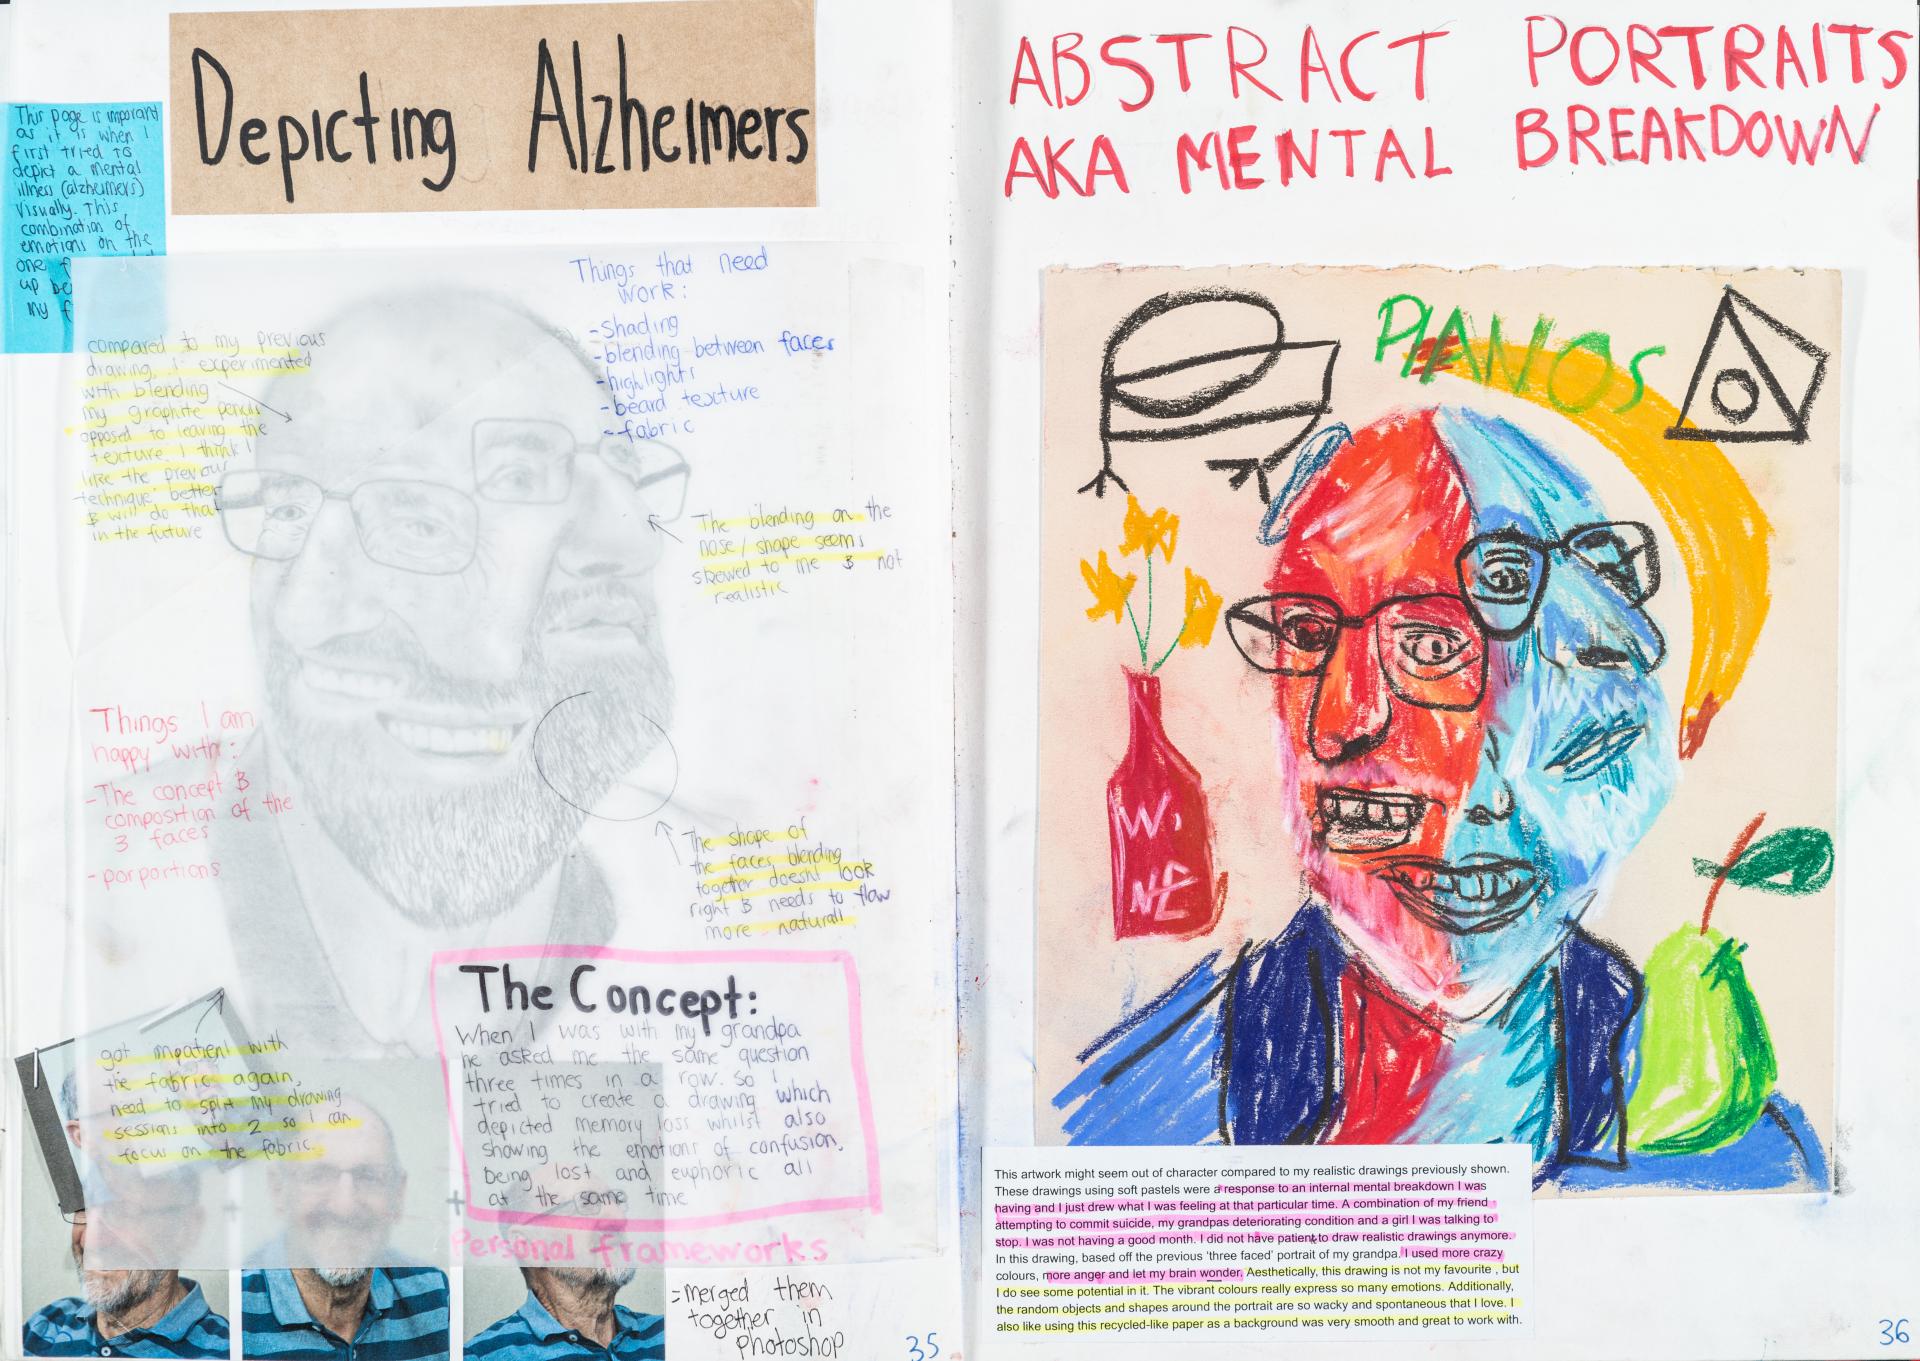 Depicting Alzheimers
This page is imporant
as it is when I
first tried to
depict a mental
illness (alzheimers)
visually. This
combination of
emotions on the
one
up be
my f
compared to my previous
drawing, I experimented
with blending
my graphite pencils
opposed to leaving the
texture. I think I
like the previous
technique better
& will do that
in the future
Things that need
work:
-shading
-blending between faces
-highlights
-beard texture
-fabric
The blending on the
nose/shape seems
skewed to me & not
realistic
Things I am
happy with:
-The concept &
composition of the
3 faces
-porportions
The shape of
the faces blending
together doesnt look
right & needs to flow
more natural!
got impatient with
the fabric again,
need to split my drawing
sessions into 2 so I can
focus on the fabric
The Concept:
When I was with my grandpa
he asked me the same question
three times in a row. so I
tried to create a drawing which
depicted memory loss whilst also
showing the emotions of confusion,
being lost and euphoric all
at the same time
Personal frameworks
+
+
=merged them
together in
photoshop
35
ABSTRACT PORTRAITS
AKA MENTAL BREAKDOWN
PIANOS
W.
NE
This artwork might seem out of character compared to my realistic drawings previously shown.
These drawings using soft pastels were a response to an internal mental breakdown I was
having and I just drew what I was feeling at that particular time. A combination of my friend
attempting to commit suicide, my grandpas deteriorating condition and a girl I was talking to
stop. I was not having a good month. I did not have patient to draw realistic drawings anymore.
In this drawing, based off the previous 'three faced' portrait of my grandpa. I used more crazy
colours, more anger and let my brain wonder. Aesthetically, this drawing is not my favourite , but
I do see some potential in it. The vibrant colours really express so many emotions. Additionally,
the random objects and shapes around the portrait are so wacky and spontaneous that I love. I
also like using this recycled-like paper as a background was very smooth and great to work with.
36